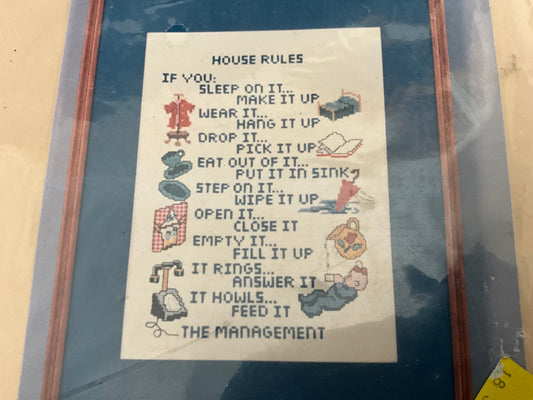 HOUSE RULES
IF YOU:
SLEEP ON IT...
MAKE IT UP
WEAR IT...
HANG IT UP
DROP IT...
PICK IT UP
EAT OUT OF IT...
PUT IT IN SINK
STEP ON IT...
WIPE IT UP
OPEN IT...
CLOSE IT
EMPTY IT...
FILL IT UP
IT RINGS...
ANSWER IT
IT HOWLS...
FEED IT
THE MANAGEMENT
18